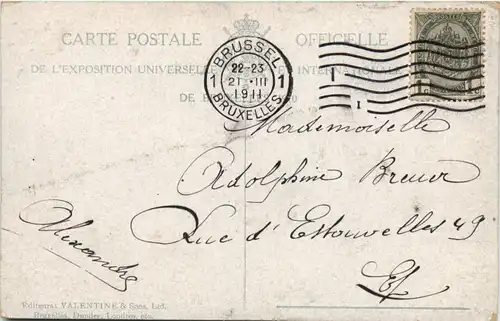 CARTE POSTALE OFFICIELLE
DE L'EXPOSITION UNIVERSELLE ET INTERNATIONALE
DE
BRUSSEL
1 22-23 1
21 III
1911
BRUXELLES
I
1c 1c
Mademoiselle
Adolphine
Rue d' 49
Alexandre
Editeurs: VALENTINE & Sons, Ltd.
Bruxelles, Dundee, Londres, etc.